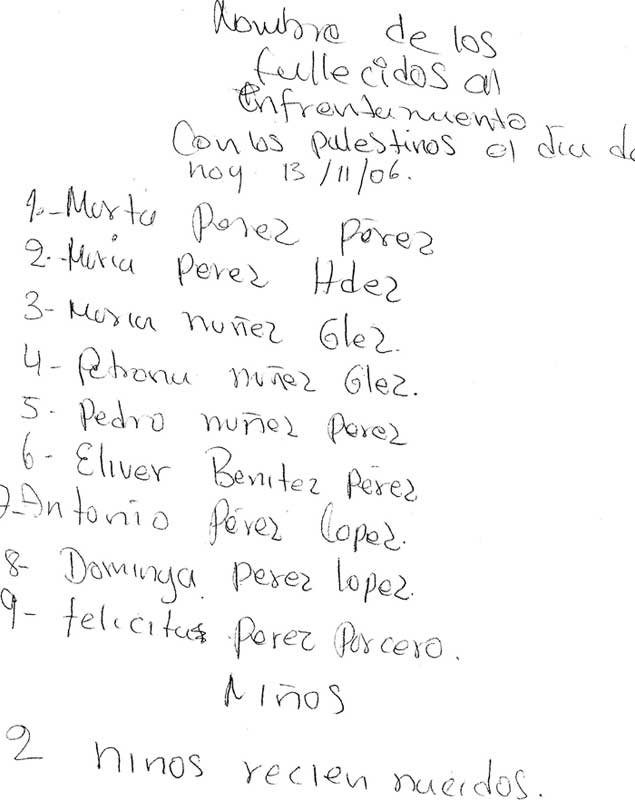 Nombre de los
fallecidos al
enfrentamiento
Con los palestinos al dia de
hoy 13/11/06.
1.-Marta Perez pérez
2.-Maria perez Hdez
3- Maria nuñez Glez.
4- Petrona nuñez Glez.
5- Pedro nuñez perez
6- Eliver Benitez perez
7-Antonio Pérez Lopez.
8- Dominga perez lopez.
9- felicitas perez Porcero.
Niños
2 ninos recien nacidos.